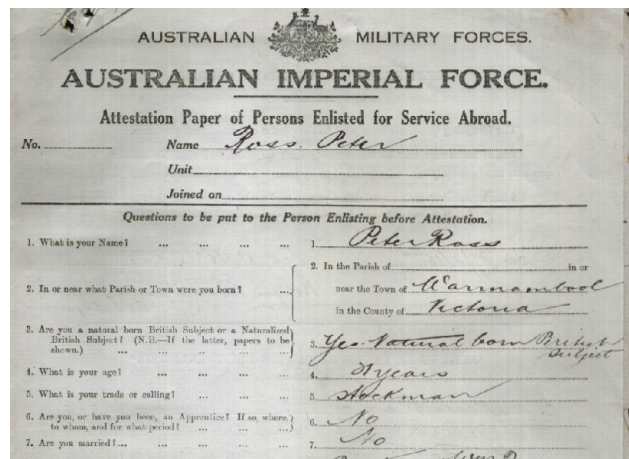 AUSTRALIAN MILITARY FORCES.
AUSTRALIAN IMPERIAL FORCE.
Attestation Paper of Persons Enlisted for Service Abroad.
No. Name Ross Peter
Unit
Joined on
Questions to be put to the Person Enlisting before Attestation.
1. What is your Name? ... ... ... ... 1. Peter Ross
2. In or near what Parish or Town were you born? ... 2. In the Parish of in or
near the Town of Warrnambool
in the County of Victoria
3. Are you a natural born British Subject or a Naturalized
British Subject? (N.B.—If the latter, papers to be
shown.) ... ... ... ... ... 3. Yes Natural born British
Subject
4. What is your age? ... ... ... ... 4. years
5. What is your trade or calling? ... ... ... 5. Stockman
6. Are you, or have you been, an Apprentice? If so, where,
to whom, and for what period? ... ... ... 6. No
7. Are you married? ... ... ... ... ... 7. No